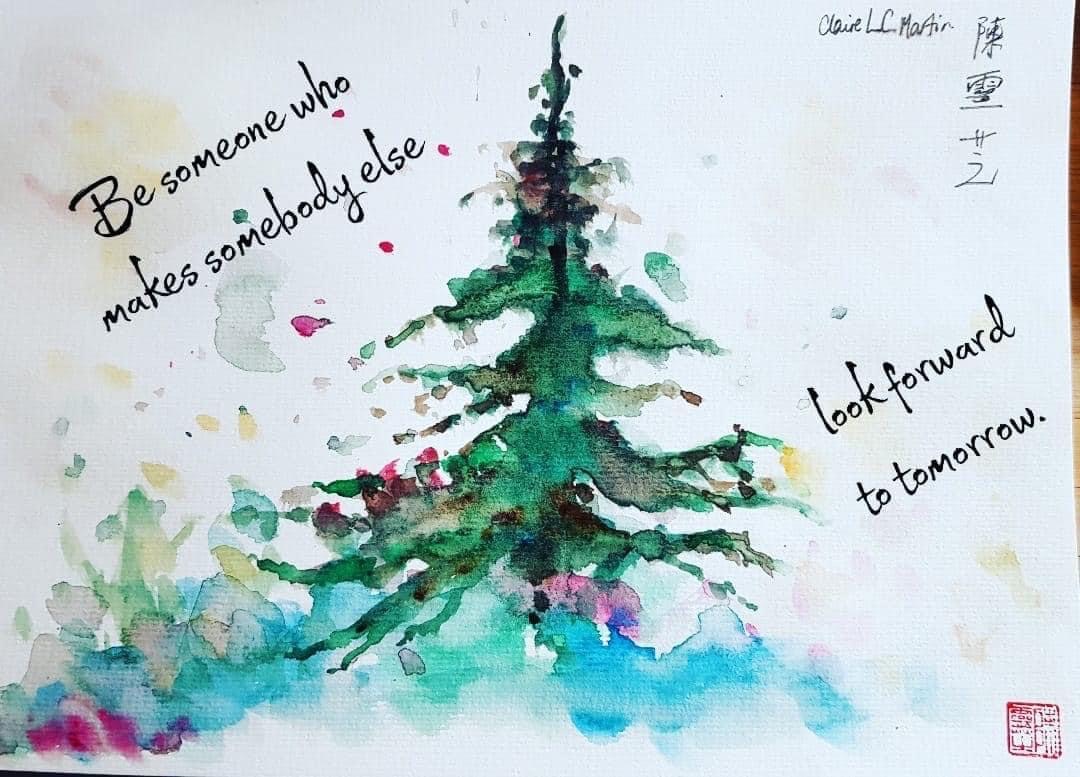 Claire L.C. Martin
陳
Be someone who
makes somebody else
look forward
to tomorrow.